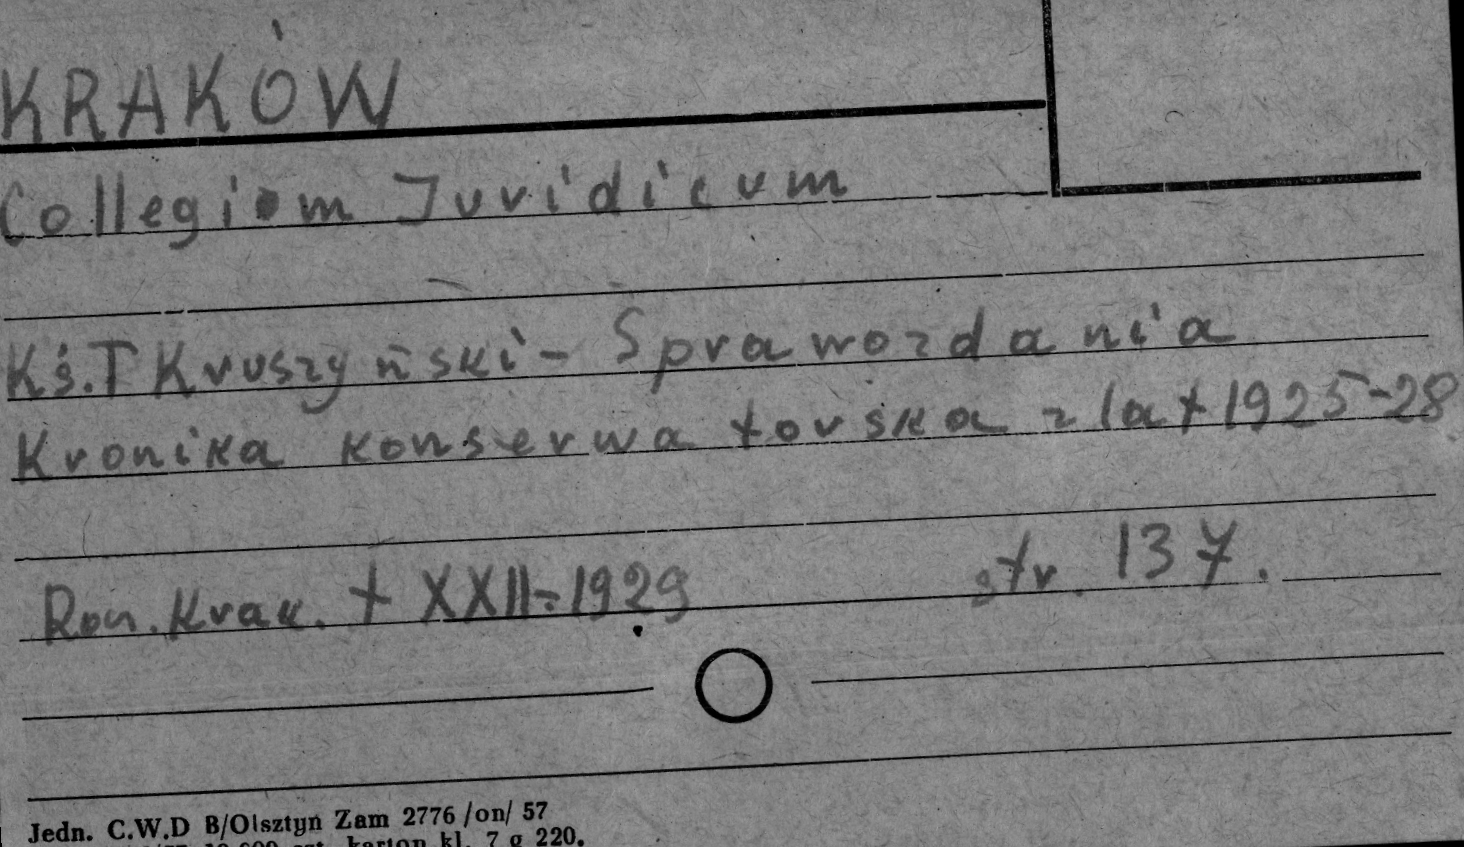 KRAKÓW
Collegium Juridicum
Kś. T Kruszyński - Sprawozdania
Kronika konserwatorska z lat 1925-28
Rocz. Krak. t XXII - 1929 str. 137.
Jedn. C.W.D B/Olsztyn Zam 2776 /on/ 57
szt. karton kl. 7 g 220.